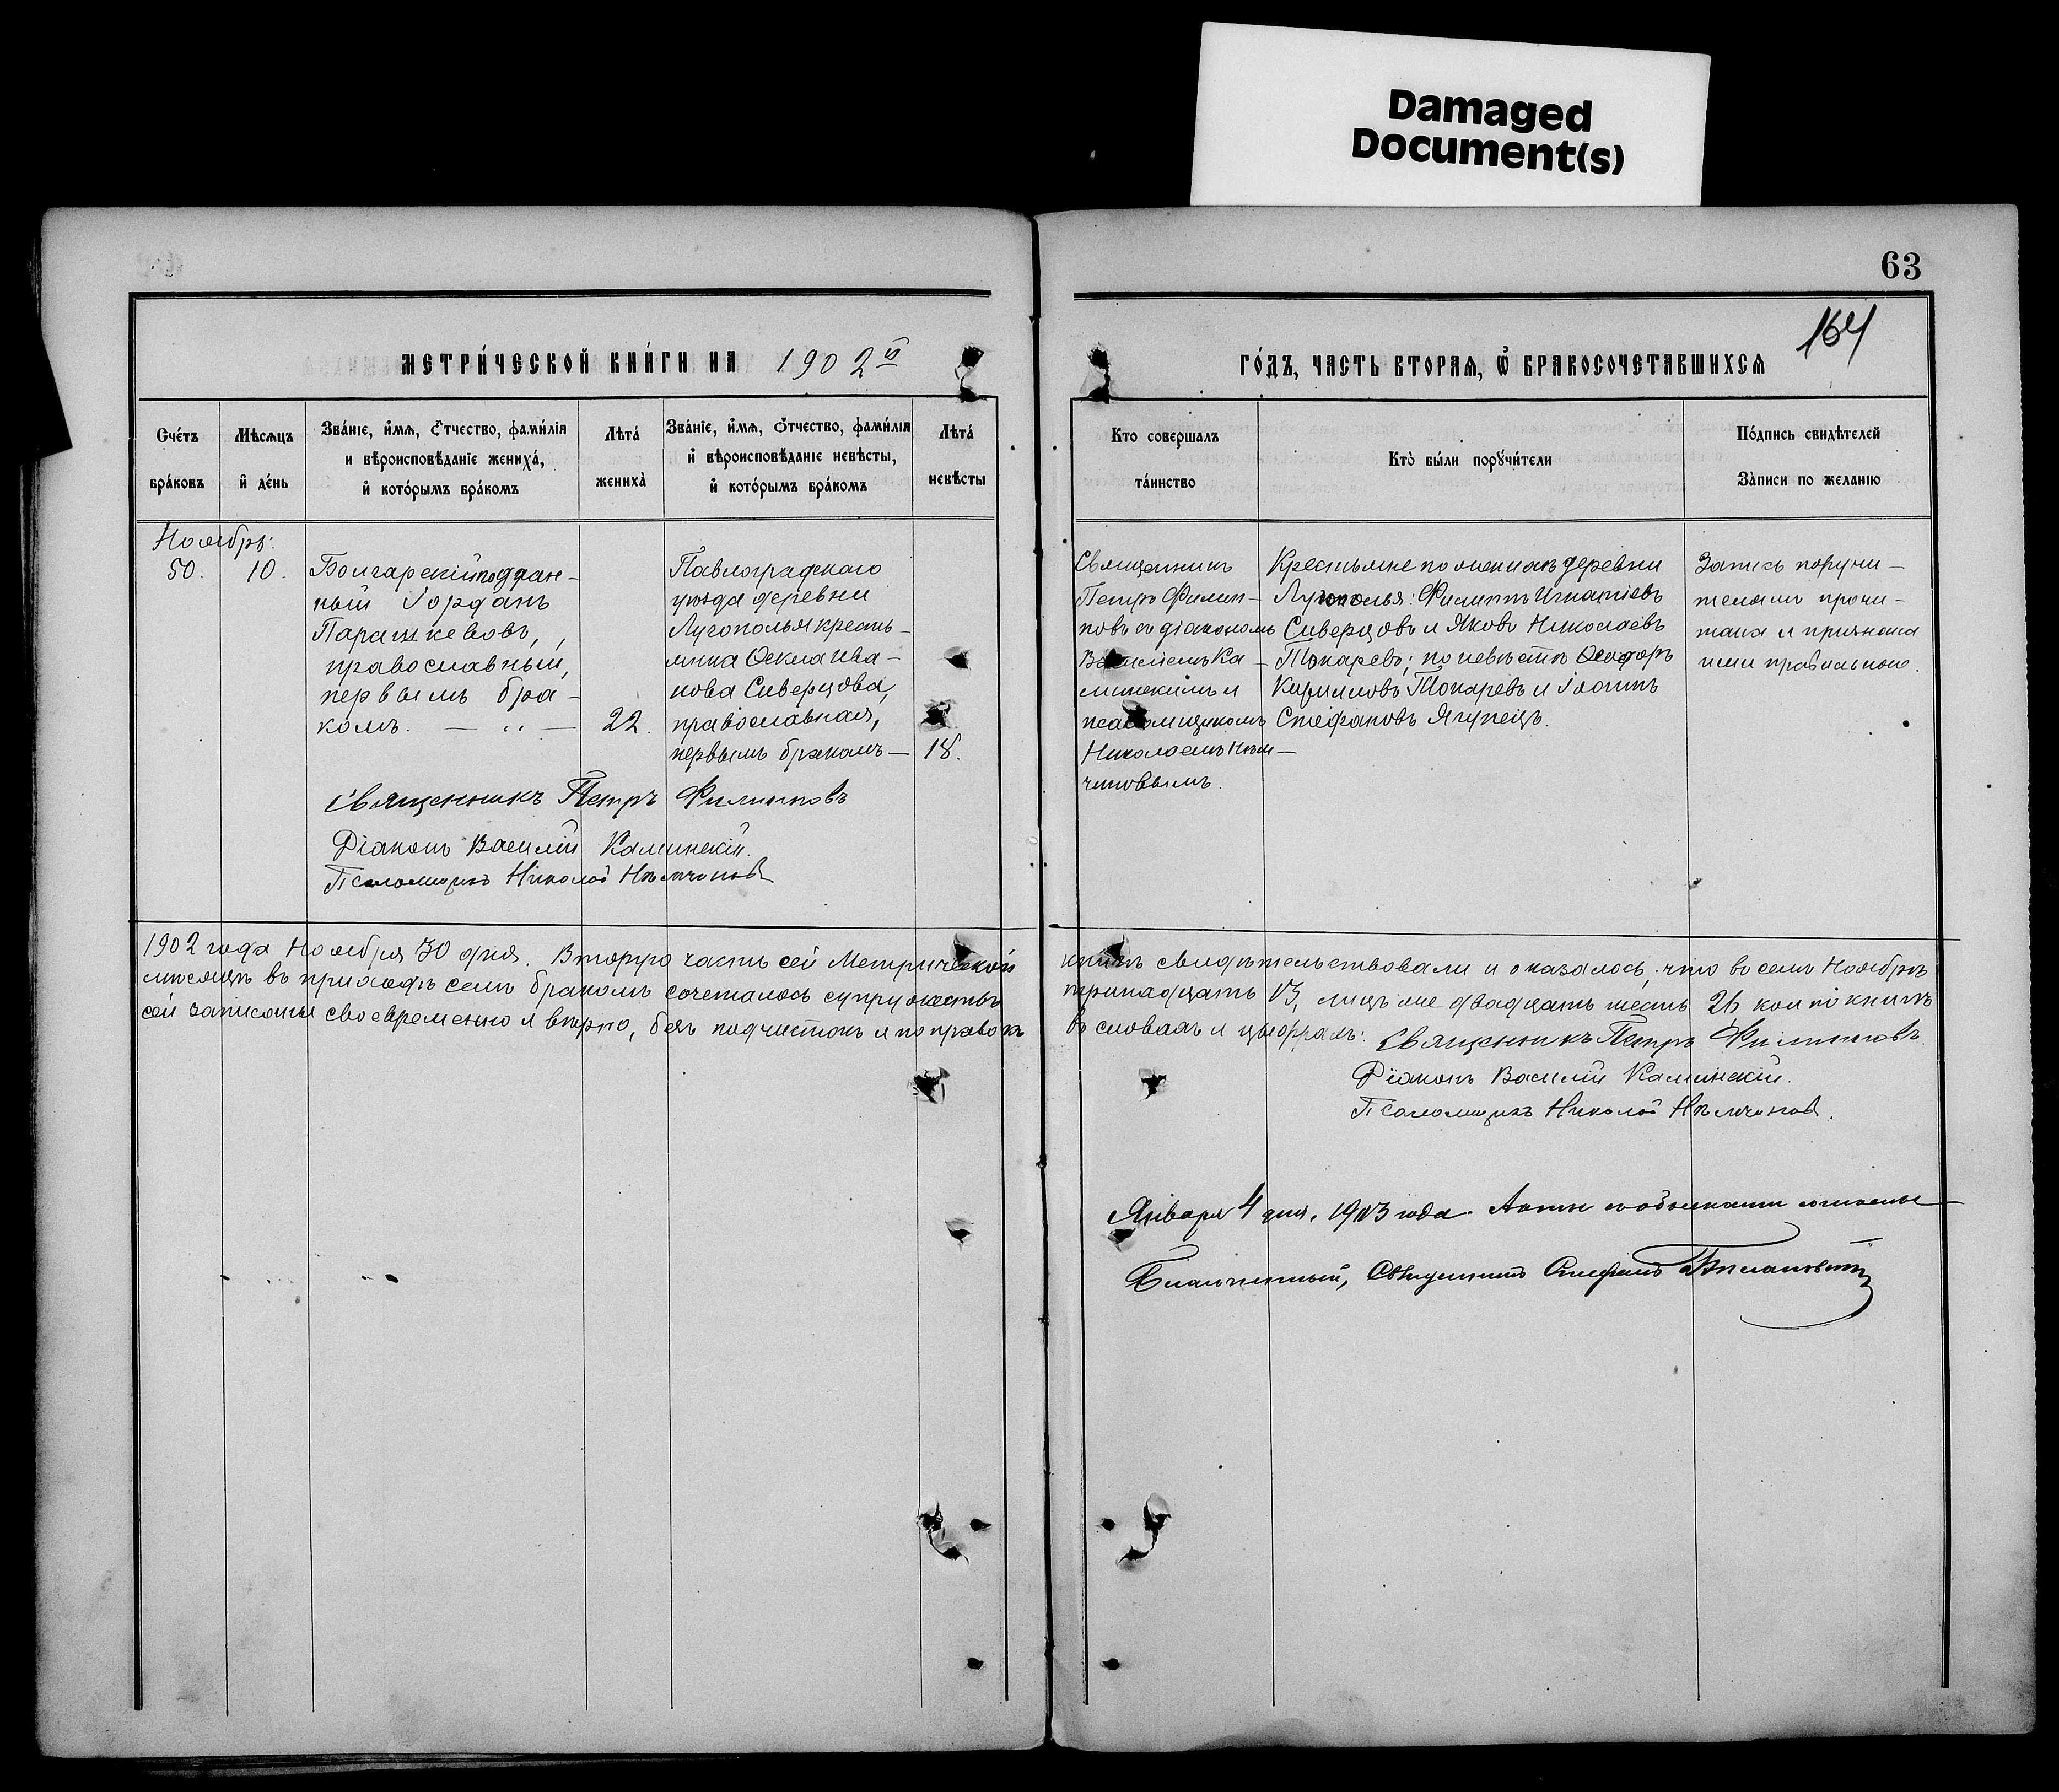 Damaged
Document(s)
63
164
МЕТРИ́ЧЕСКОЙ КНИ́ГИ НА 1902й
ГО́ДЪ, ЧАСТЬ ВТОРАѦ, Ѡ҆ БРАКОСОЧЕТАВШИХСѦ
Счéтъ
брáковъ
Мѣсѧцъ
и҆ дéнь
Звáнїе, и҆́мѧ, ѻ҆́тчество, фами́лїѧ
и вѣроисповѣ́данїе женихá,
и҆ кото́рымъ брáкомъ
Лѣтá
женихà
Звáнїе, и҆́мѧ, ѻ҆́тчество, фами́лїѧ
и҆ вѣроисповѣ́данїе невѣ́сты,
и҆ кото́рымъ брáкомъ
Лѣтá
невѣ́сты
Кто совершалъ
тáинство
Ктò бы́ли порꙋчи́тели
По́дпись свидѣ́телей
Зàписи по желáнїю
Ноябрь:
50.
10.
Болгарскій поддан-
ный Іорданъ
Парашкевовъ,
православный,
первымъ бра-
комъ. — „ —
22.
Павлоградскаго
уѣзда деревни
Лугополья кресть-
янка Ѳекла Ива-
нова Сиверцова,
православная,
первымъ бракомъ —
18.
Священникъ
Петръ Филип-
повъ съ діакономъ
Василіемъ Ка-
минскимъ и
псаломщикомъ
Николаемъ Нѣм-
чиновымъ.
Крестьяне по женихѣ деревни
Лугополья: Филиппъ Игнатіевъ
Сиверцовъ и Яковъ Николаевъ
Токаревъ; по невѣстѣ Ѳеодоръ
Кирилловъ Токаревъ и Іоаннъ
Стефановъ Ягупецъ.
Запись поручи-
телямъ прочи-
тана и признана
ими правильною.
Священникъ Петръ Филипповъ
Діаконъ Василій Каминскій.
Псаломщикъ Николай Нѣмчиновъ
1902 года Ноября 30 дня. Вторую часть сей Метрической книги свидѣтельствовали и оказалось, что въ семъ Ноябрѣ
мѣсяцѣ въ приходѣ семъ бракомъ сочеталось супружествъ тринадцать 13, лицъ же двадцать шесть 26 кои по книгѣ
сей записаны своевременно и вѣрно, безъ подчистокъ и поправокъ въ словахъ и цыфрахъ: Священникъ Петръ Филипповъ.
Діаконъ Василій Каминскій.
Псаломщикъ Николай Нѣмчиновъ.
Января 4 дня, 1903 года. Акты съ обысками согласны
Благочинный, Священникъ Стефанъ